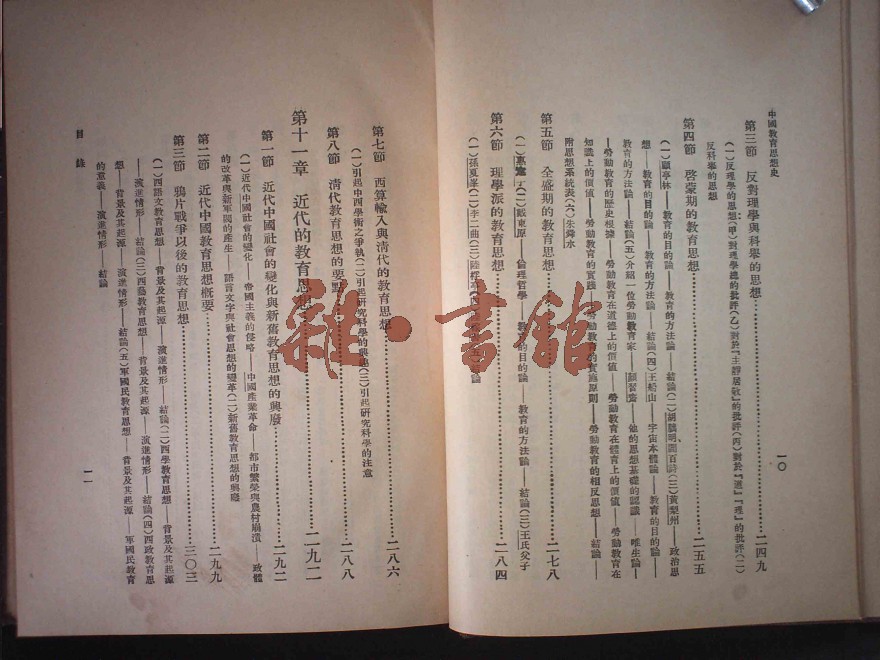 中國教育思想史
一〇
第三節 反對理學與科學的思想……二四九
(一)反理學的思想:(甲)對理學總的批評(乙)對於『主靜居敬』的批評(丙)對於『道』『理』的批評(二)
反科舉的思想
第四節 啓蒙期的教育思想……二五五
(一)顧亭林——教育的目的論——教育的方法論——結論(二)胡 閻百詩(三)黃梨州——政治思
想——教育的目的論——教育的方法論——結論(四)王船山——宇宙本體論——教育的目的論——
教育的方法論——結論(五)介紹一位勞動教育家——顏習齋——他的思想基礎的認識——唯生論——
勞動教育的歷史根據——勞動教育在道德上的價值——勞動教育在體育上的價值——勞動教育在
知識上的價值——勞動教育的實踐——勞動教育的實施原則——勞動教育的相反思想——結論——
附思想系統表(六)朱舜水
第五節 全盛期的教育思想……二七八
(一)惠 (二)戴東原——倫理哲學——教育的目的論——教育的方法論——結論(三)王氏父子
第六節 理學派的教育思想……二八四
(一)孫夏峯(二)李二曲(三)陸桴亭(四) 論
第七節 西算輸入與清代的教育思想……二八六
(一)引起中西學術之爭執(二)引起研究科學的興趣(三)引起研究科學的注意
第八節 清代教育思想的要點……二八八
第十一章 近代的教育思想……二九二
第一節 近代中國社會的變化與新舊教育思想的興廢……二九二
(一)近代中國社會的變化——帝國主義的侵略——中國產業革命——都市繁榮與農村崩潰——政體
的改革與新軍閥的產生——語言文字與社會思想的變革(二)新舊教育思想的興廢
第二節 近代中國教育思想概要……二九九
第三節 鴉片戰爭以後的教育思想……三〇三
(一)西語文教育思想——背景及其起源——演進情形——結論(二)西學教育思想——背景及其起源
——演進情形——結論(三)西藝教育思想——背景及其起源——演進情形——結論(四)西政教育思
想——背景及其起源——演進情形——結論(五)軍國民教育思想——背景及其起源——軍國民教育
的意義——演進情形——結論
目錄
一一
雜·書館